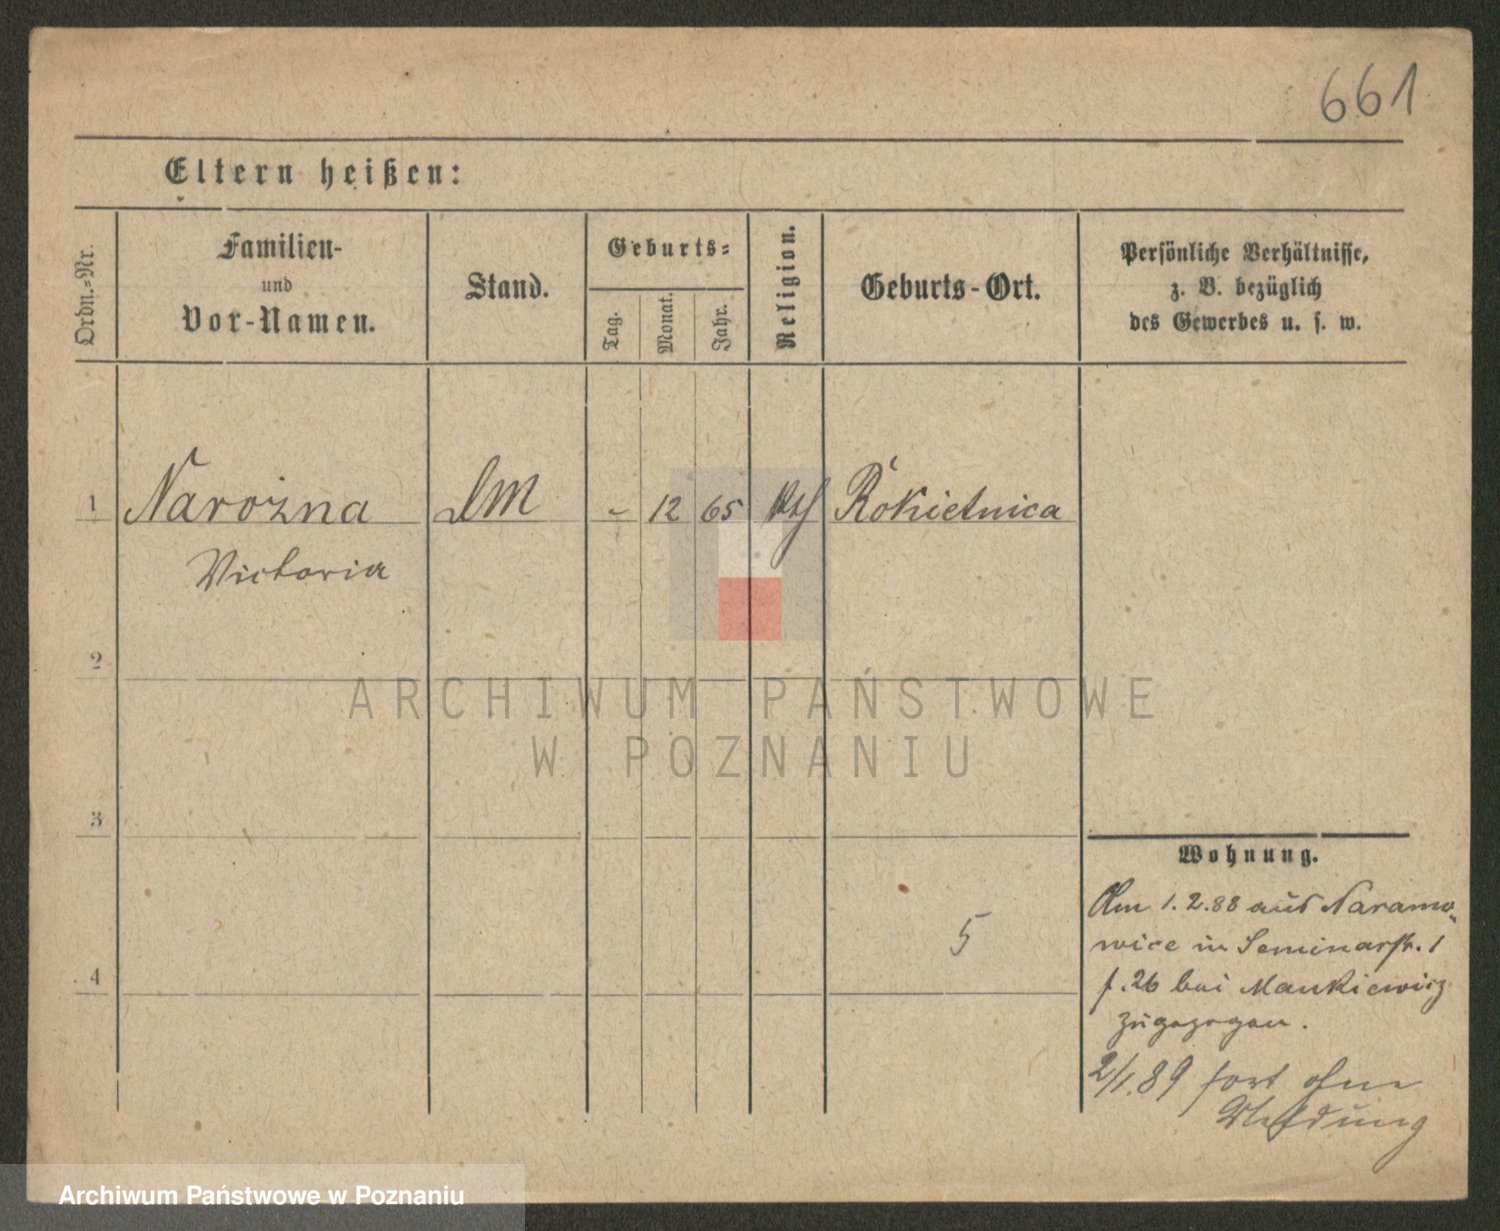 661
Eltern heißen:
Ordn.-Nr.
Familien-
und
Vor-Namen.
Stand.
Geburts-
Tag.
Monat.
Jahr.
Religion.
Geburts-Ort.
Persönliche Verhältnisse,
z. B. bezüglich
des Gewerbes u. s. w.
1 Narożna DM - 12 65 kth Rokietnica
Victoria
2
ARCHIWUM PAŃSTWOWE
W POZNANIU
3
Wohnung.
Am 1.2.88 aus Naramo-
wice in Seminarstr. 1
f. 26 bei Mankiewicz
zugezogen.
5
4
2/1.89 fort ohne
Meldung
Archiwum Państwowe w Poznaniu